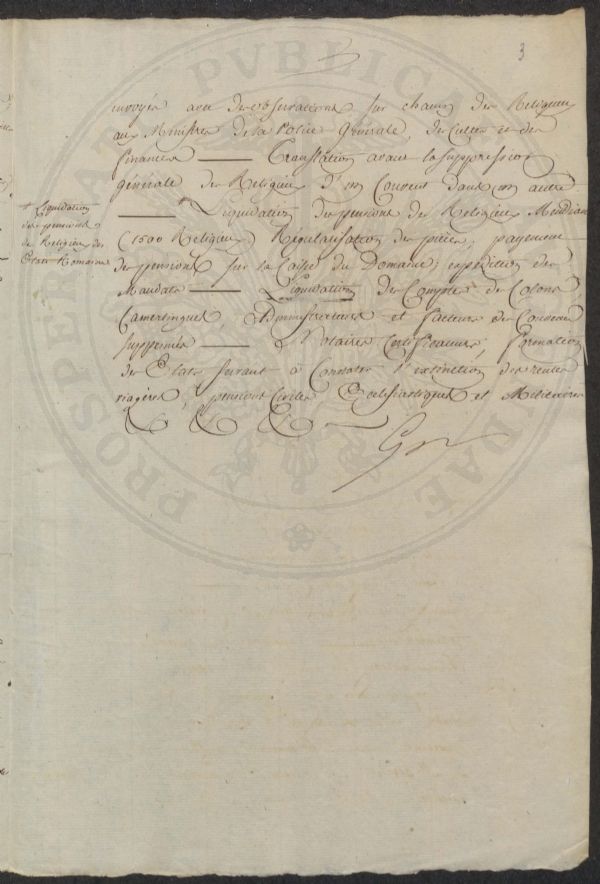 3
envoyés avec des observations sur chacun des Religieux
aux Ministres de la Police Générale, des Cultes et des
finances — Translation avant la suppression
générale des Religieux d'un Couvent dans un autre
— + Liquidation des pensions des Religieux Mendians
(1500 Religieux) Régularisation des pièces, payement
des pensions sur la Caisse du Domaine, expédition des
Mandats — Liquidation des Comptes des Colons
Camerlingues Administrateurs et facteurs des Couvens
supprimés — Notaires Certificateurs, formation
des Etats servant à Constater l'extinction des rentes
viagères, pensions Civiles Ecclésiastiques et Militaires
&c &c &c
+ Liquidation
des pensions
de Religieux des
Etats Romains
PROSPERITATI PVBLICAE